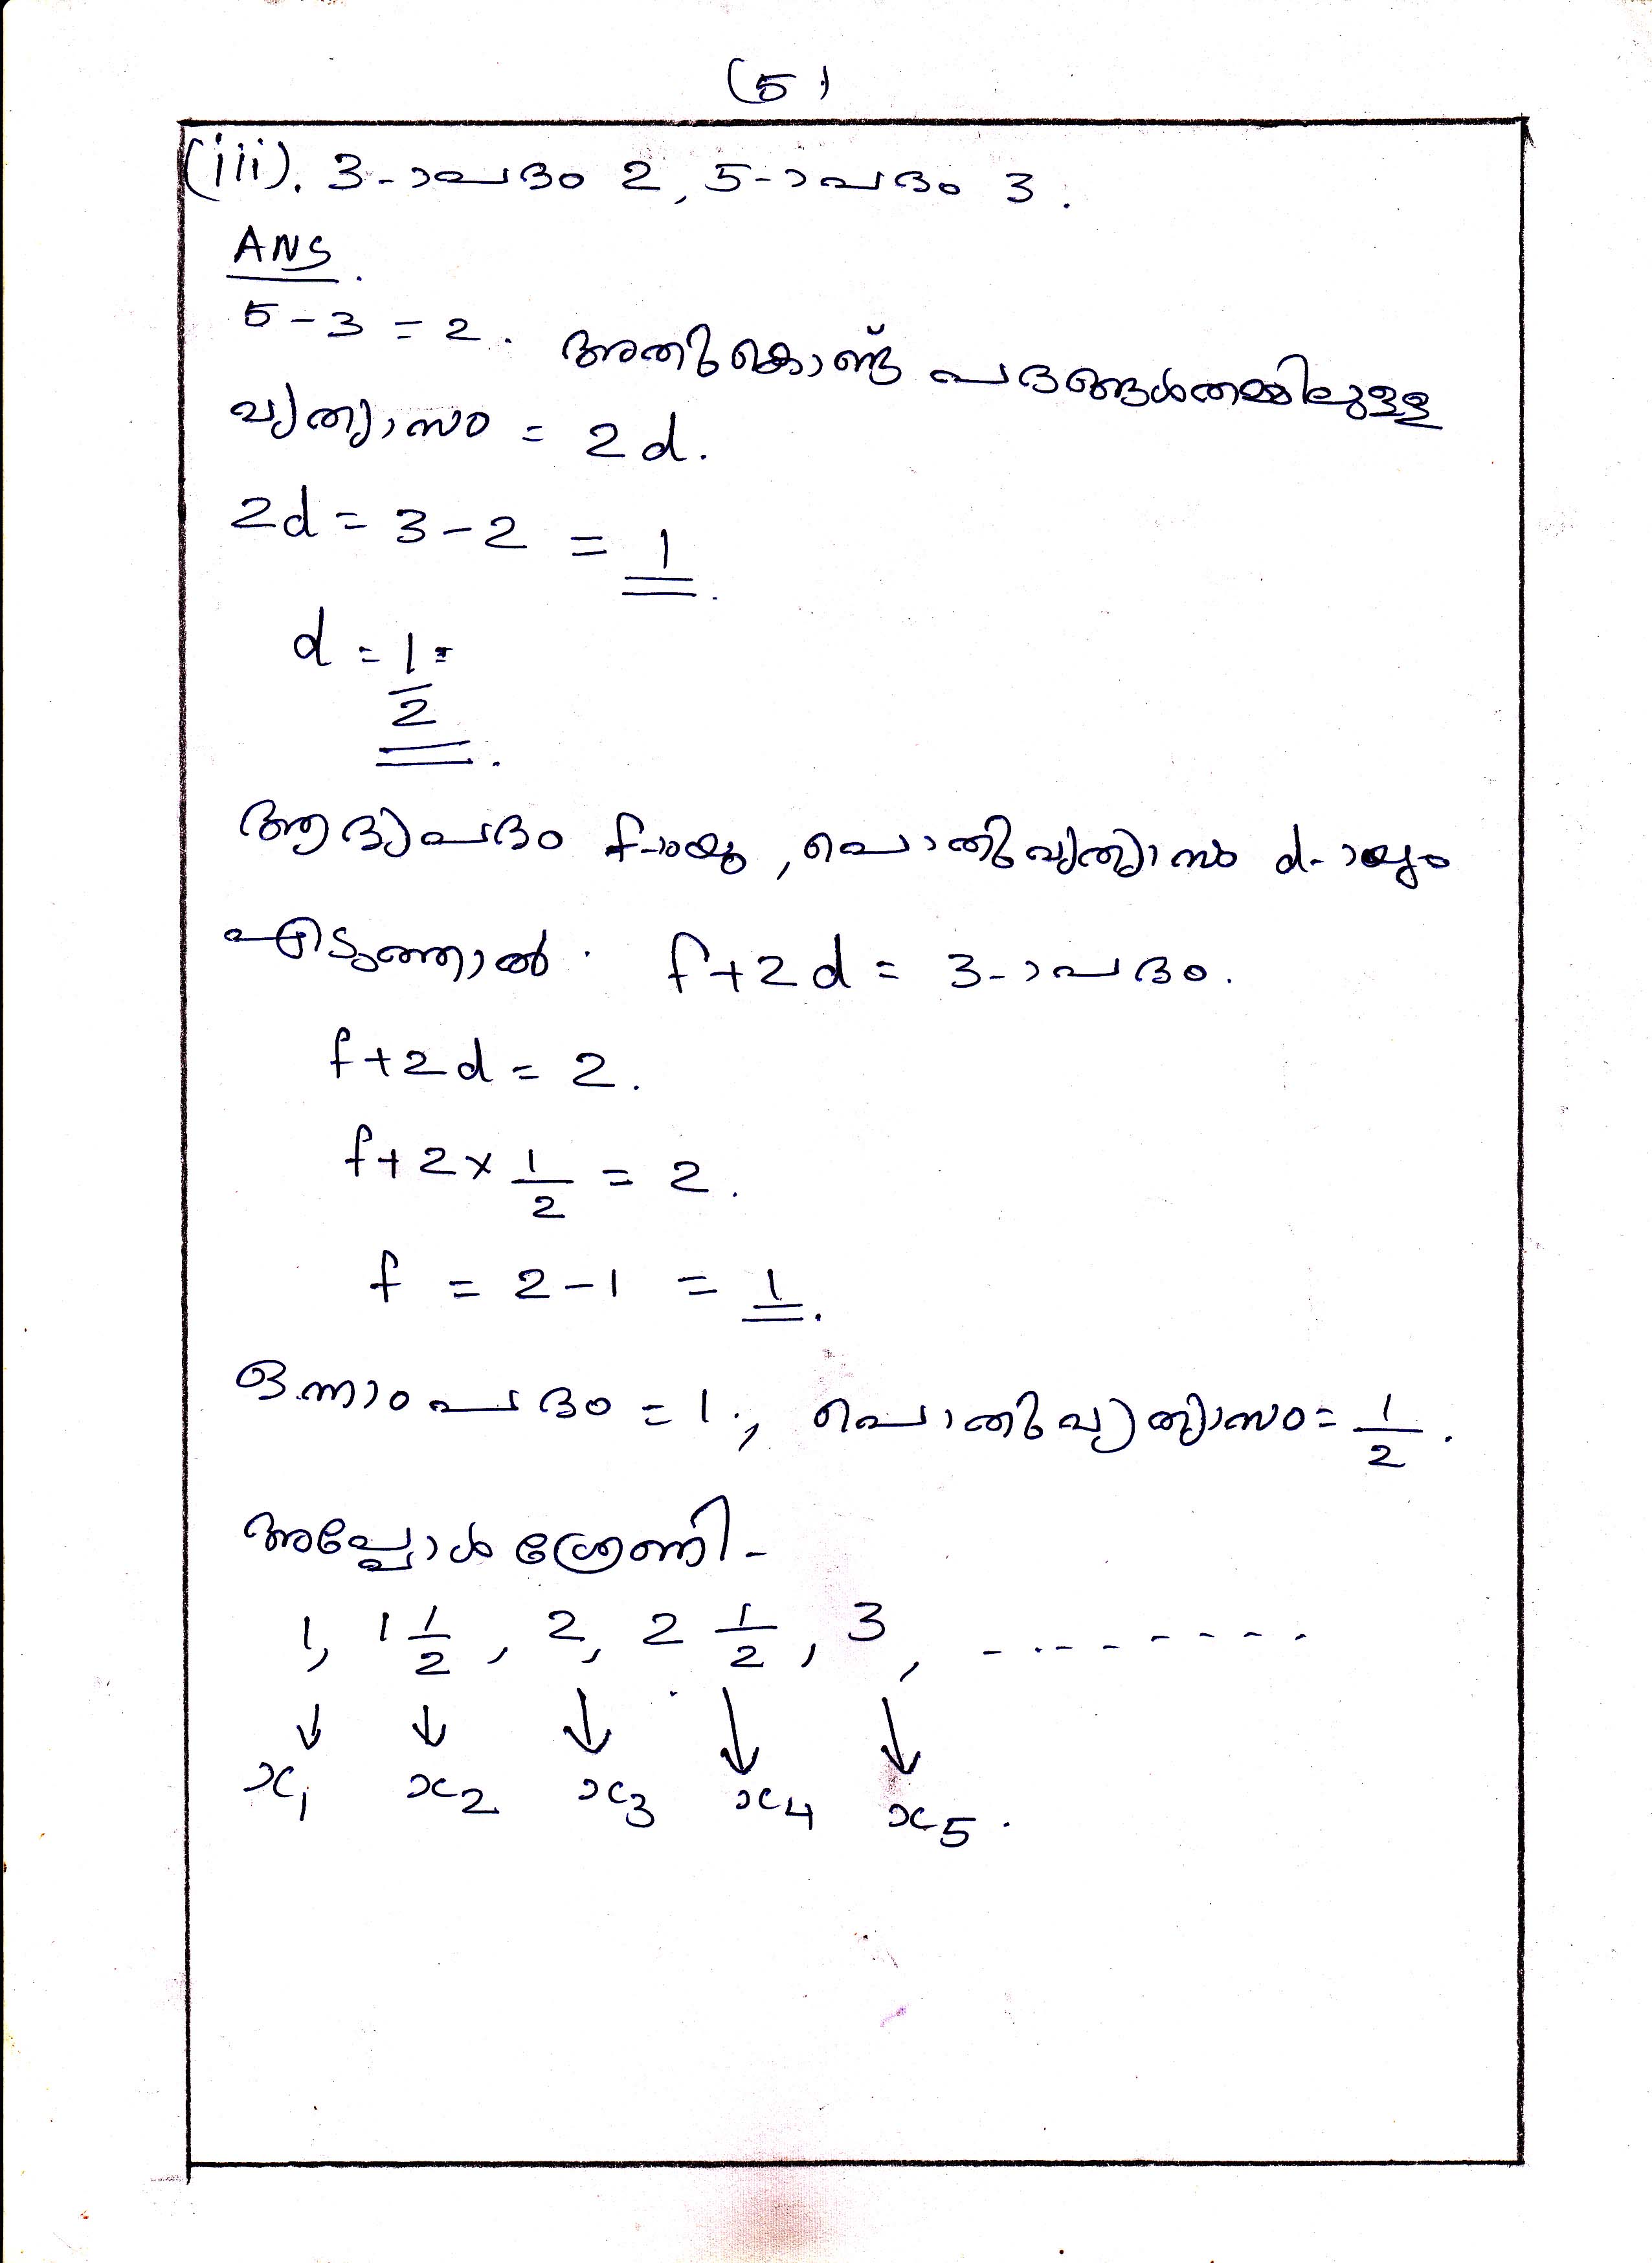 (5)
(iii). 3-ാംപദം 2, 5-ാംപദം 3.
ANS.
5-3 = 2. അതുകൊണ്ട് പദങ്ങൾതമ്മിലുള്ള
വ്യത്യാസം = 2d.
2d = 3-2 = 1.
d = 1/2.
ആദ്യപദം f-ായും, പൊതുവ്യത്യാസം d-ായും
എടുത്താൽ. f+2d = 3-ാംപദം.
f+2d = 2.
f+2× 1/2 = 2.
f = 2-1 = 1.
ഒന്നാംപദം = 1, പൊതുവ്യത്യാസം = 1/2.
അപ്പോൾ ശ്രേണി -
1, 1 1/2, 2, 2 1/2, 3, ---------
↓ ↓ ↓ ↓ ↓
x1 x2 x3 x4 x5.